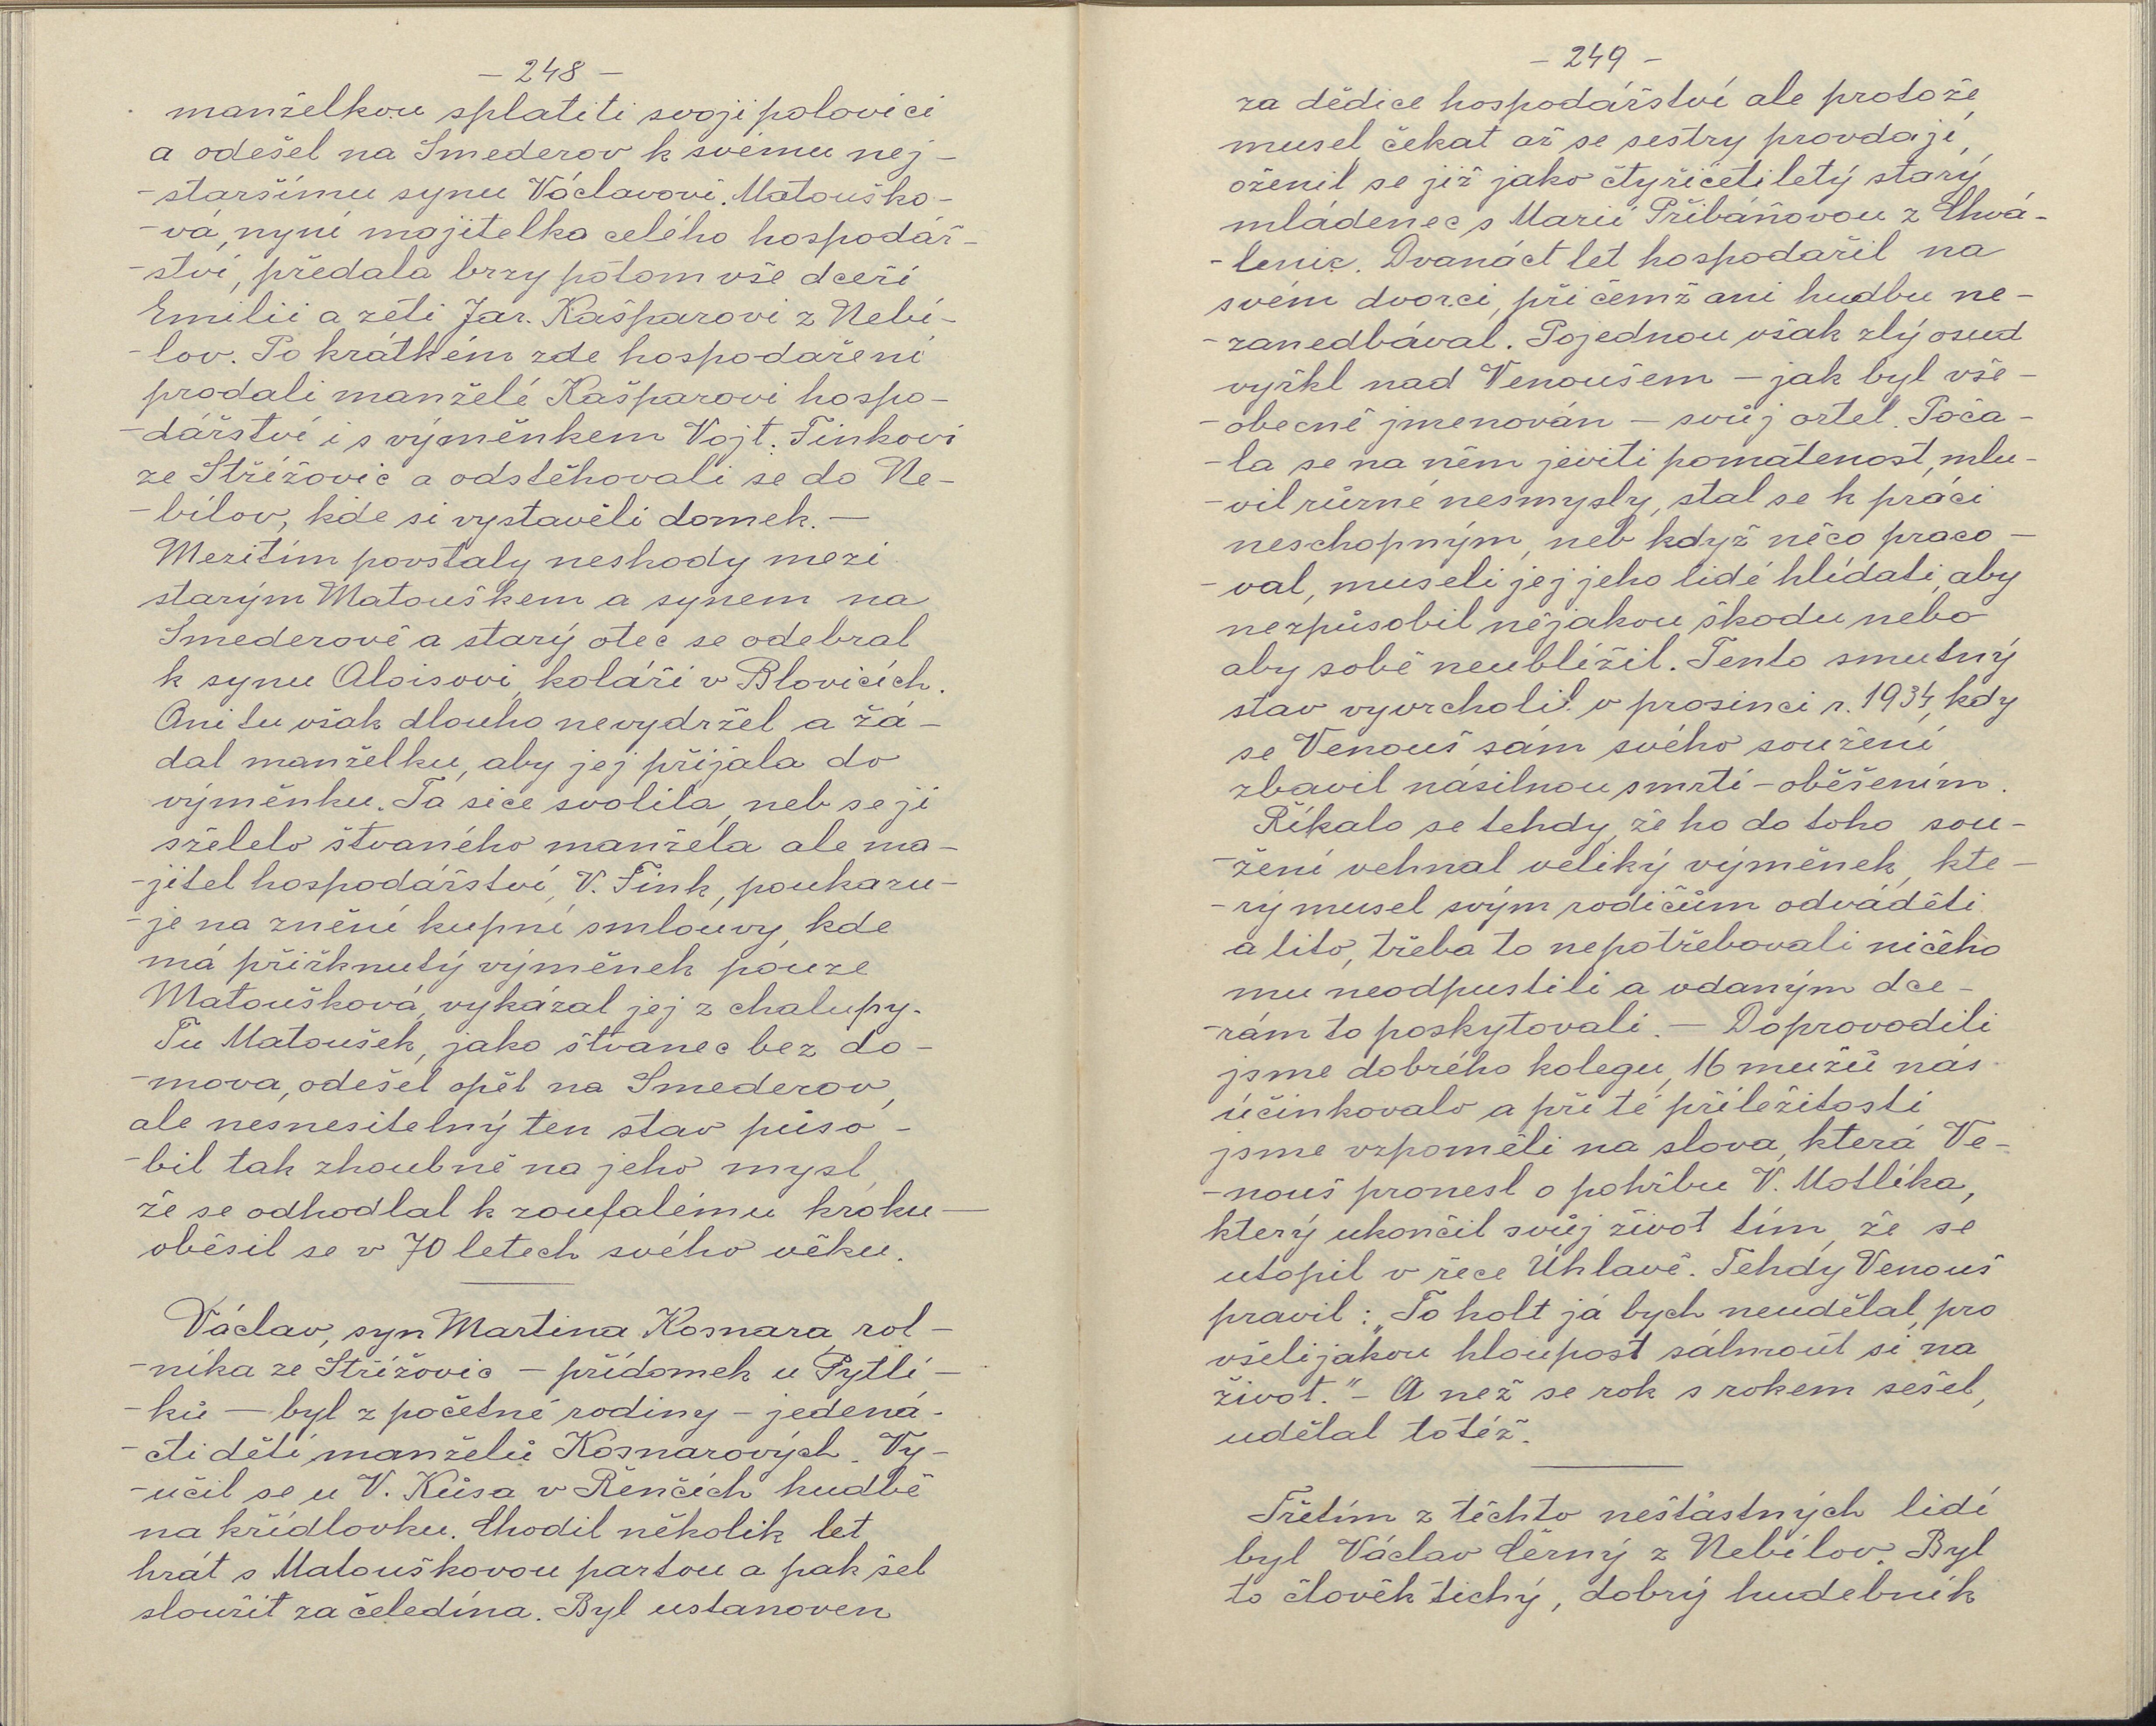 – 248 –
manželkou splatiti svoji polovici
a odešel na Smederov k svému nej-
-staršímu synu Václavovi. Matouško-
-vá, nyní majitelka celého hospodář-
-ství, předala brzy potom vše dceři
Emilii a zěti Jar. Kašparovi z Nebí-
-lov. Po krátkém zde hospodaření
prodali manželé Kašparovi hospo-
-dářství i s výměnkem Vojt. Finkovi
ze Střížovic a odstěhovali se do Ne-
-bílov, kde si vystavěli domek. —
Mezitím povstaly neshody mezi
starým Matouškem a synem na
Smederově a starý otec se odebral
k synu Aloisovi, koláři v Blovicích.
Ani tu však dlouho nevydržel a žá-
dal manželku, aby jej přijala do
výměnku. Ta sice svolila, neb se jí
sželelo štvaného manžela ale ma-
-jitel hospodářství, V. Fink, poukazu-
-je na znění kupní smlouvy, kde
má přiřknutý výměnek pouze
Matoušková, vykázal jej z chalupy.
Tu Matoušek, jako štvanec bez do-
-mova, odešel opět na Smederov,
ale nesnesitelný ten stav půso-
-bil tak zhoubně na jeho mysl,
že se odhodlal k zoufalému kroku —
oběsil se v 70 letech svého věku.
Václav, syn Martina Kosnara, rol-
-níka ze Střížovic — přídomek u Pytlí-
-ků — byl z početné rodiny – jedená-
-cti dětí manželů Kosnarových. Vy-
-učil se u V. Kůsa v Řenčích hudbě
na křídlovku. Chodil několik let
hrát s Matouškovou partou a pak šel
sloužit za čeledína. Byl ustanoven
– 249 –
za dědice hospodářství ale protože
musel čekat až se sestry provdají,
oženil se již jako čtyřicetiletý starý
mládenec s Marií Přibáňovou z Chvá-
-lenic. Dvanáct let hospodařil na
svém dvorci, při čemž ani hudbu ne-
-zanedbával. Pojednou však zlý osud
vyřkl nad Venoušem – jak byl vše-
-obecně jmenován – svůj ortel. Poča-
-la se na něm jeviti pomatenost, mlu-
-vil různé nesmysly, stal se k práci
neschopným, neb když něco praco-
-val, museli jej jeho lidé hlídati, aby
nezpůsobil nějakou škodu nebo
aby sobě neublížil. Tento smutný
stav vyvrcholil v prosinci r. 1934, kdy
se Venouš sám svého soužení
zbavil násilnou smrtí – oběšením.
Říkalo se tehdy, že ho do toho sou-
-žení vehnal veliký výměnek, kte-
-rý musel svým rodičům odváděti
a tito, třeba to nepotřebovali ničeho
mu neodpustili a vdaným dce-
-rám to poskytovali. — Doprovodili
jsme dobrého kolegu, 16 mužů nás
účinkovalo a při té příležitosti
jsme vzpoměli na slova, která Ve-
-nouš pronesl o pohřbu V. Motlíka,
který ukončil svůj život tím, že se
utopil v řece Úhlavě. Tehdy Venouš
pravil: „To holt já bych neudělal, pro
všelijakou hloupost sálmout si na
život." – A než se rok s rokem sešel,
udělal totéž.
Třetím z těchto nešťastných lidí
byl Václav Černý z Nebílov. Byl
to člověk tichý, dobrý hudebník